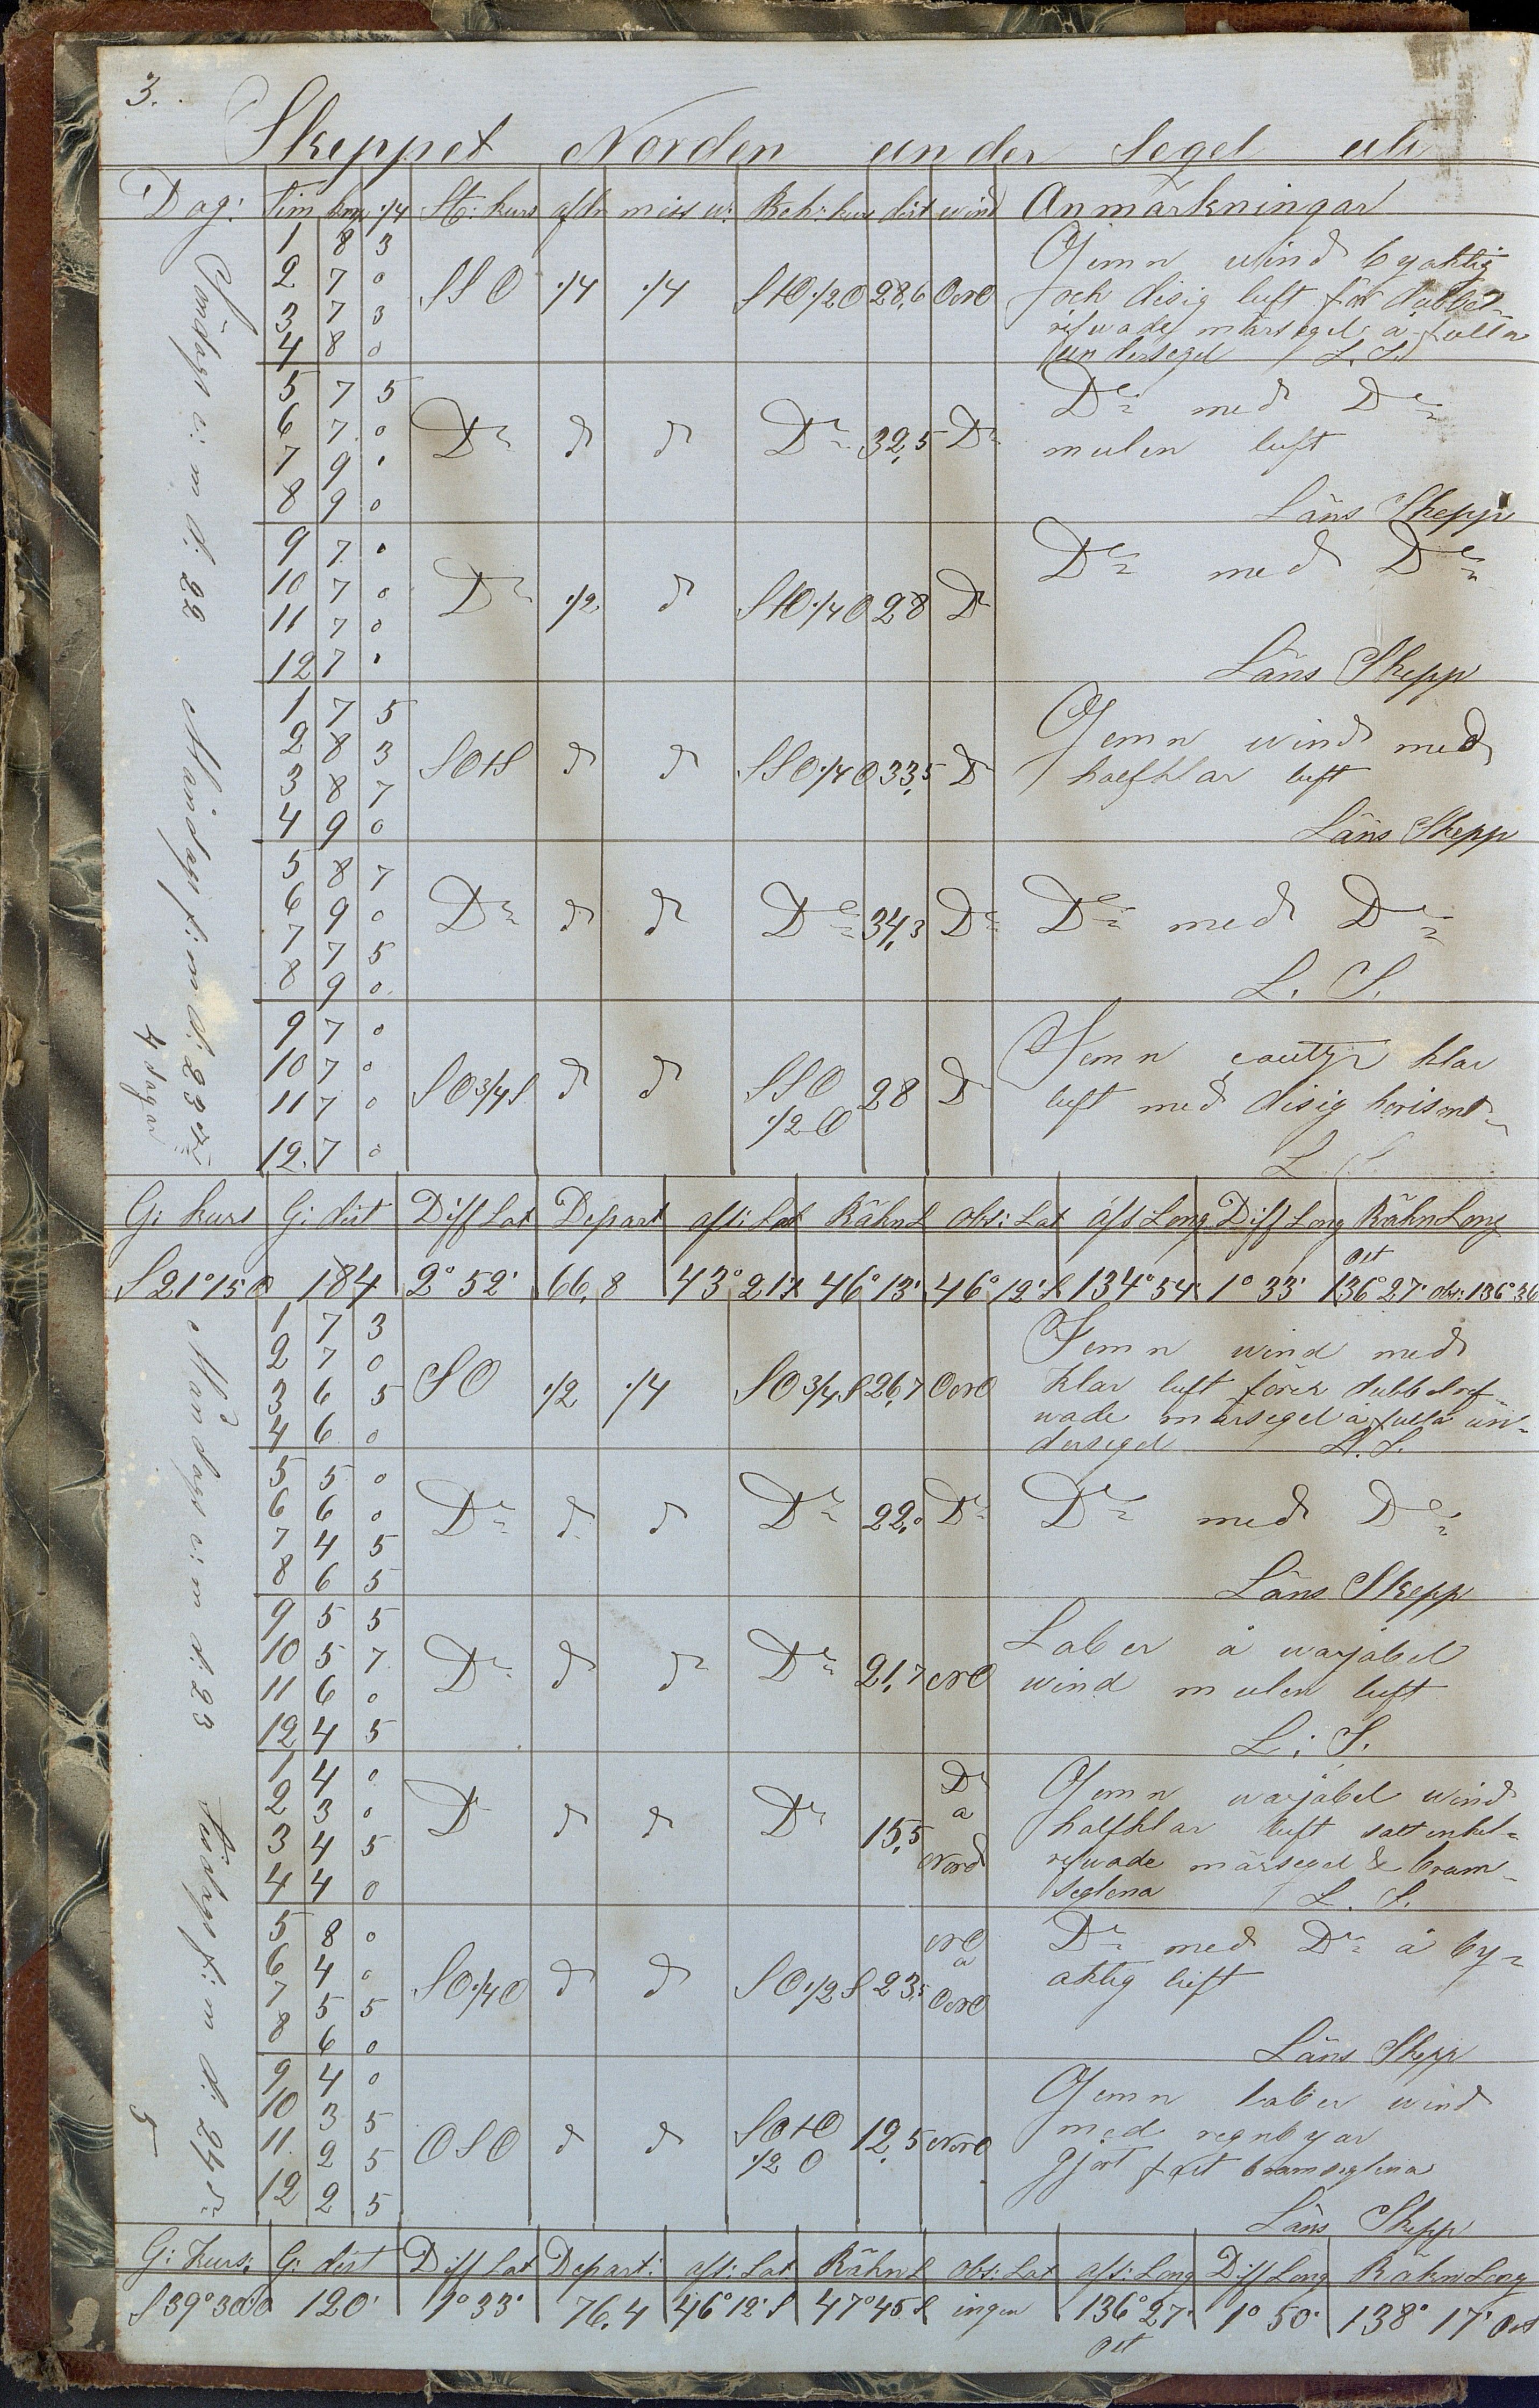 3.
Skeppet Norden under Segel uti
Dag: Tim kn 1/4 St: kurs afdr missw: Beh: kurs dist wind Anmärkningar
Söndags e: m d: 22 Måndags f: m d: 23de
4 dagar
1 8 3
2 7 0
3 7 3
4 8 0
SSO 1/4 1/4 StO 1/2 O 28,6 ONO
Jemn wind byaktig
och disig luft för dubbel-
refwade märsegel å fulla
undersegel L. S.
5 7 5
6 7 0
7 9 0
8 9 0
Do d d Do 32,5 Do
Do med Do
mulen luft
Läns Skepp
9 7 0
10 7 0
11 7 0
12 7 0
Do 1/2 d StO 1/4 O 28 Do
Do med Do
Läns Skepp
1 7 5
2 8 3
3 8 7
4 9 0
SOtS d d SSO 1/4 O 33,5 D
Jemn wind med
halfklar luft
Läns Skepp
5 8 7
6 9 0
7 7 5
8 9 0
Do d d Do 34,3 Do
Do med Do
L. S.
9 7 0
10 7 0
11 7 0
12 7 0
SO 3/4 S d d SSO 1/2 O 28 D
Jemn klar
luft med disig horisont
L
G: kurs G: dist Diff Lat Depart aff: Lat Rähn L obs: Lat aff: Long Diff Long Rähn Long
S 21° 15 O 184 2° 52' 66,8 43° 21' 46° 13' 46° 12' S 134° 54' 1° 33' Ost 136° 27' obs: 136° 36
Måndags e: m d: 23 Tisdags f: m d: 24de
5
1 7 3
2 7 0
3 6 5
4 6 0
SO 1/2 1/4 SO 3/4 S 26,7 ONO
Jemn wind med
klar luft förer dubbelref
wade märsegel å fulla un-
dersegel L. S.
5 5 0
6 6 0
7 4 5
8 6 5
Do d d Do 22,0 Do
Do med Do
Läns Skepp
9 5 5
10 5 7
11 6 0
12 4 5
Do d d Do 21,7 NO
Laber å warjabel
wind mulen luft
L: S.
1 4 0
2 3 0
3 4 5
4 4 0
D d d Do 15,5 Do a Nord
Jemn warjabel wind
halfklar luft satt enkel-
refwade märsegel & bram-
seglena L. S.
5 8 0
6 4 0
7 5 5
8 6 0
SO 1/4 O d d SO 1/2 S 23,5 NO a ONO
Do med Do å by-
aktig luft
Läns Skepp
9 4 0
10 3 5
11 2 5
12 2 5
OSO d d SOtO 1/2 O 12,5 NNO
Jemn laber wind
med regnbyar
gjort fast bramseglena
Läns Skepp
G: Kurs: G: dist Diff Lat Depart: aff: Lat Rähn L obs: Lat aff: Long Diff Long Rähn Long
S 39° 30 O 120' 1° 33' 76,4 46° 12' S 47° 45' S ingen 136° 27' Ost 1° 50' 138° 17' Ost